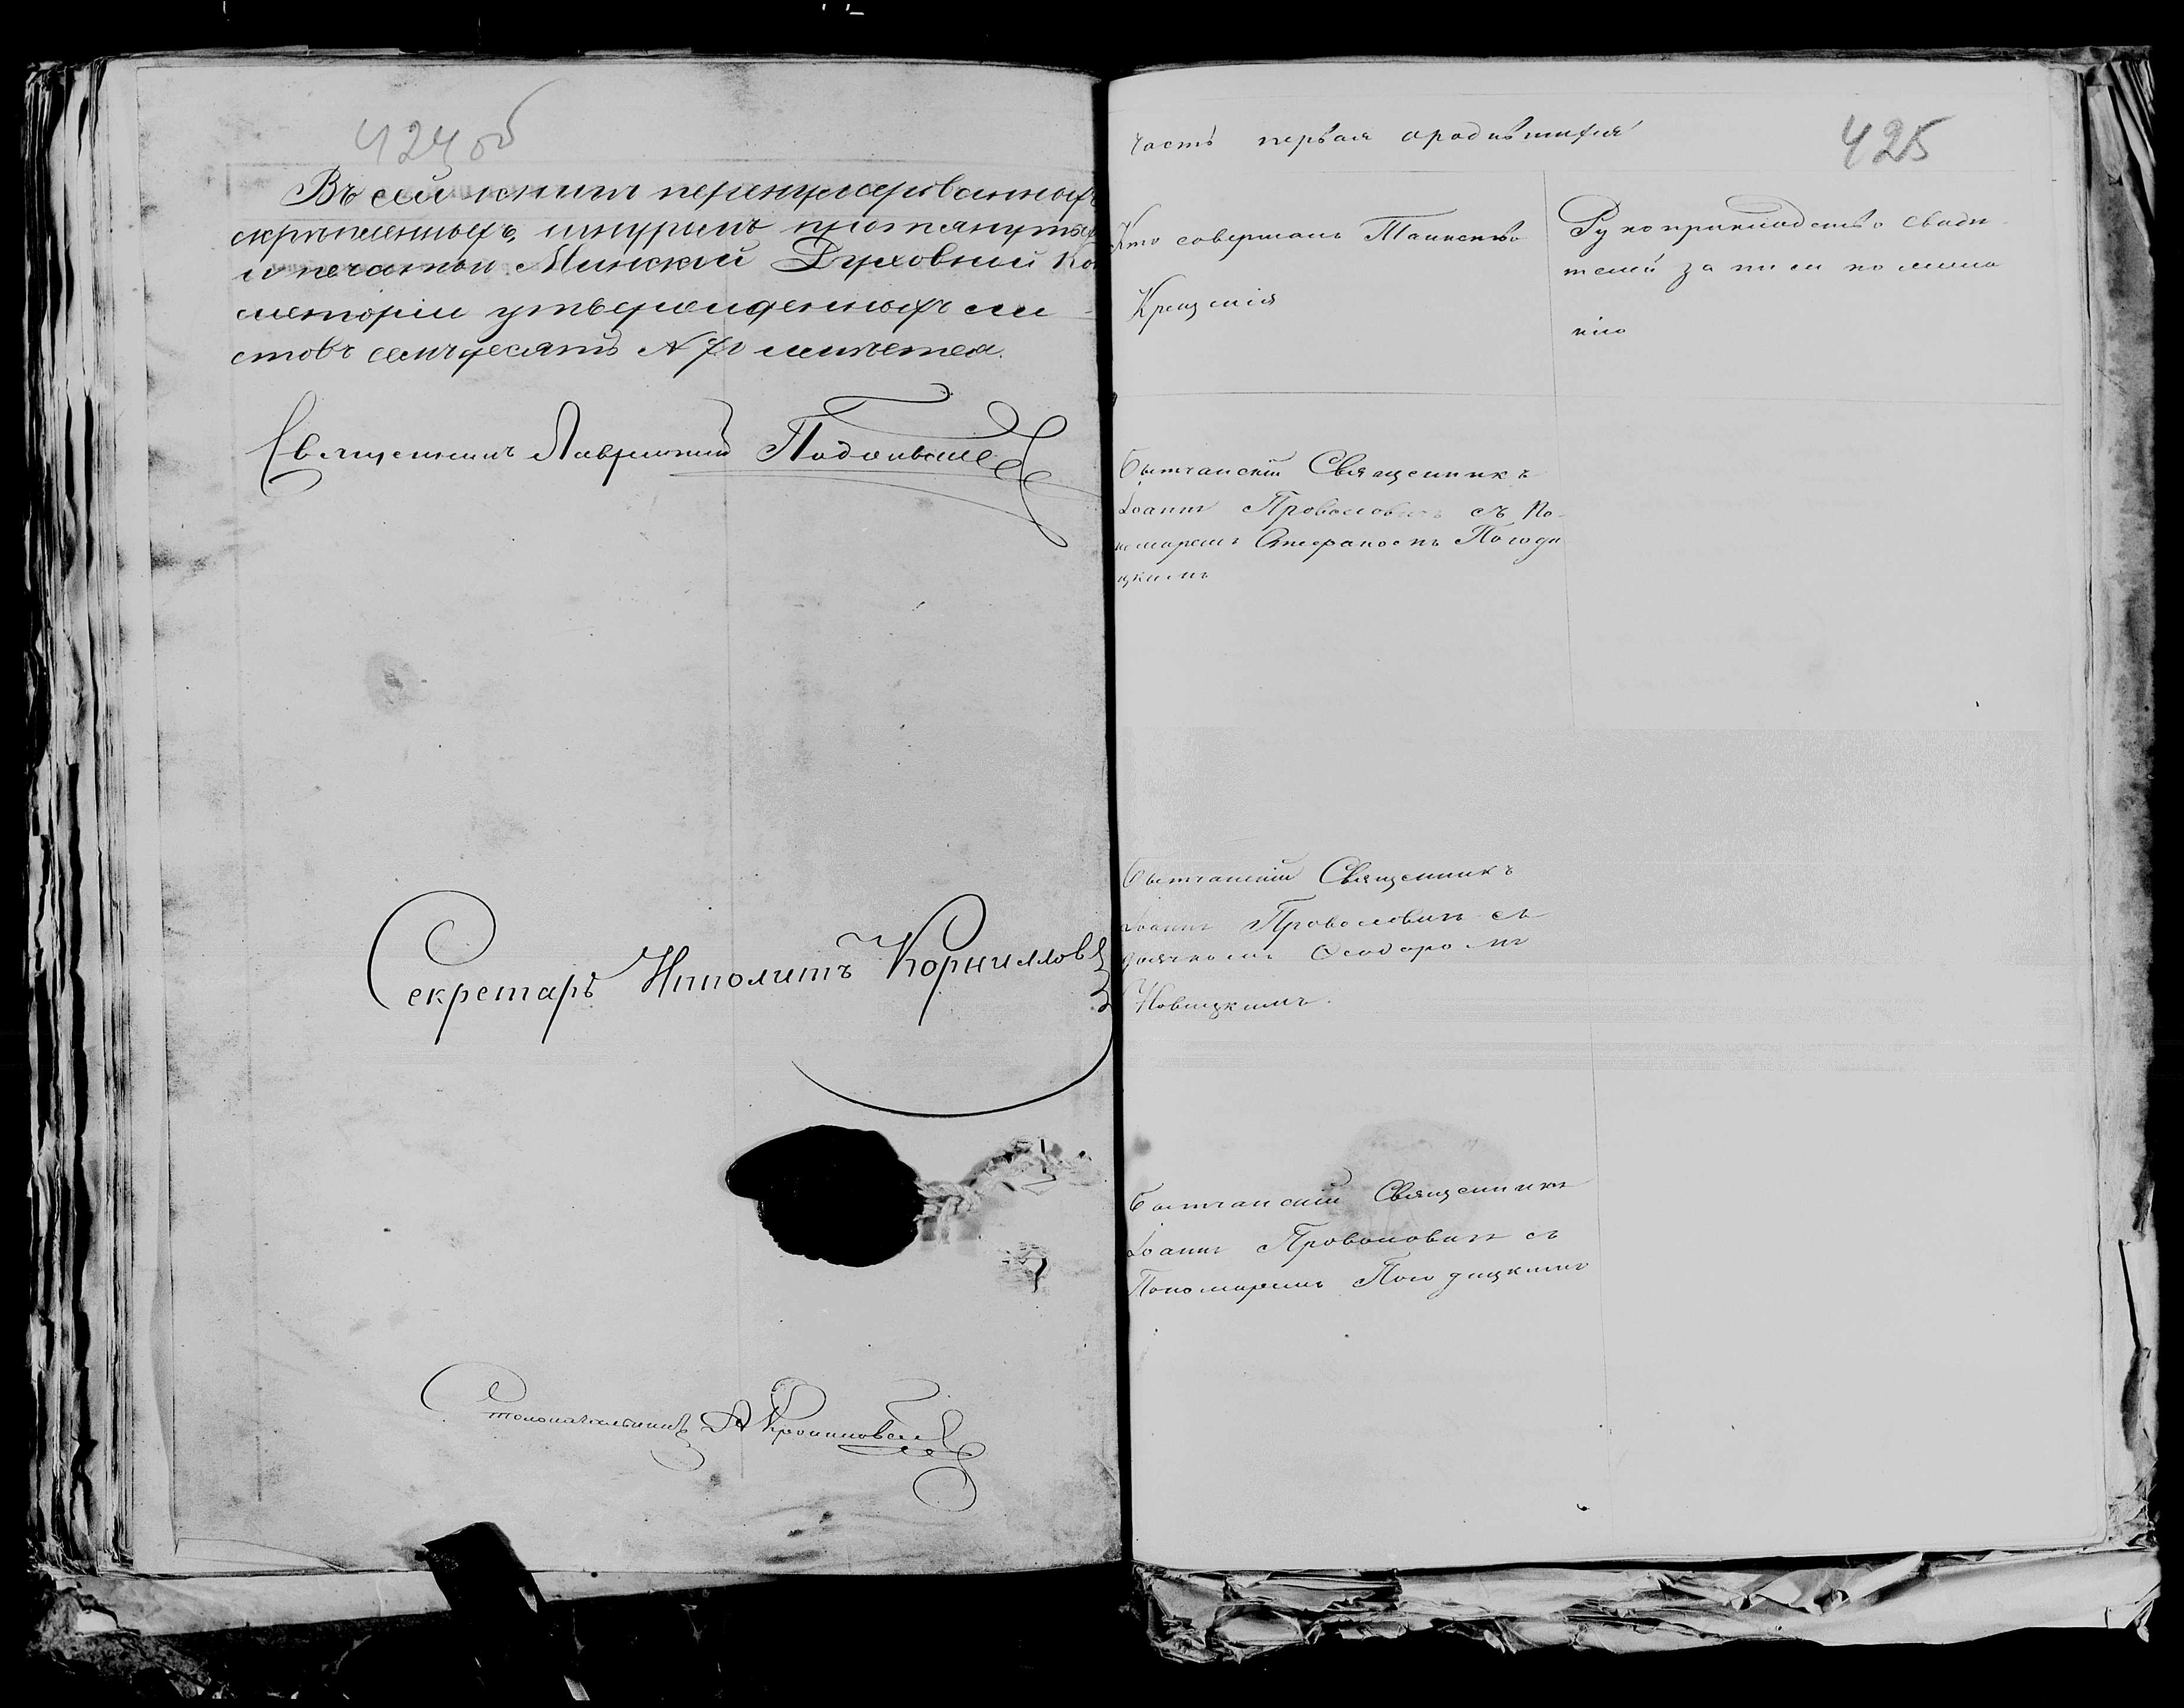 424 об
Въ сей книги перенумерованныхъ
скрѣпленныхъ, шнуромъ протянутыхъ
и печатью Минской Духовной Ко
систоріи утвержденныхъ ли
стовъ семьдесятъ N 70 числится.
Священникъ Лаврентій
Секретарь Ипполитъ Корниллов
Столоначальникъ А
425
Часть первая о родившихся
Кто совершалъ Таинство
Крещенія
Рукоприкладство свидѣ
телей записи по жела
нію
Бытчанскій Священникъ
Іоаннъ Проволовичъ съ По-
номаремъ Погоди
цкимъ
Бытчанскій Священникъ
Іоаннъ Проволовичъ съ
дьячкомъ Ѳеодоромъ
Новицкимъ.
Бытчанскій Священникъ
Іоаннъ Проволовичъ съ
Пономаремъ Погодицкимъ